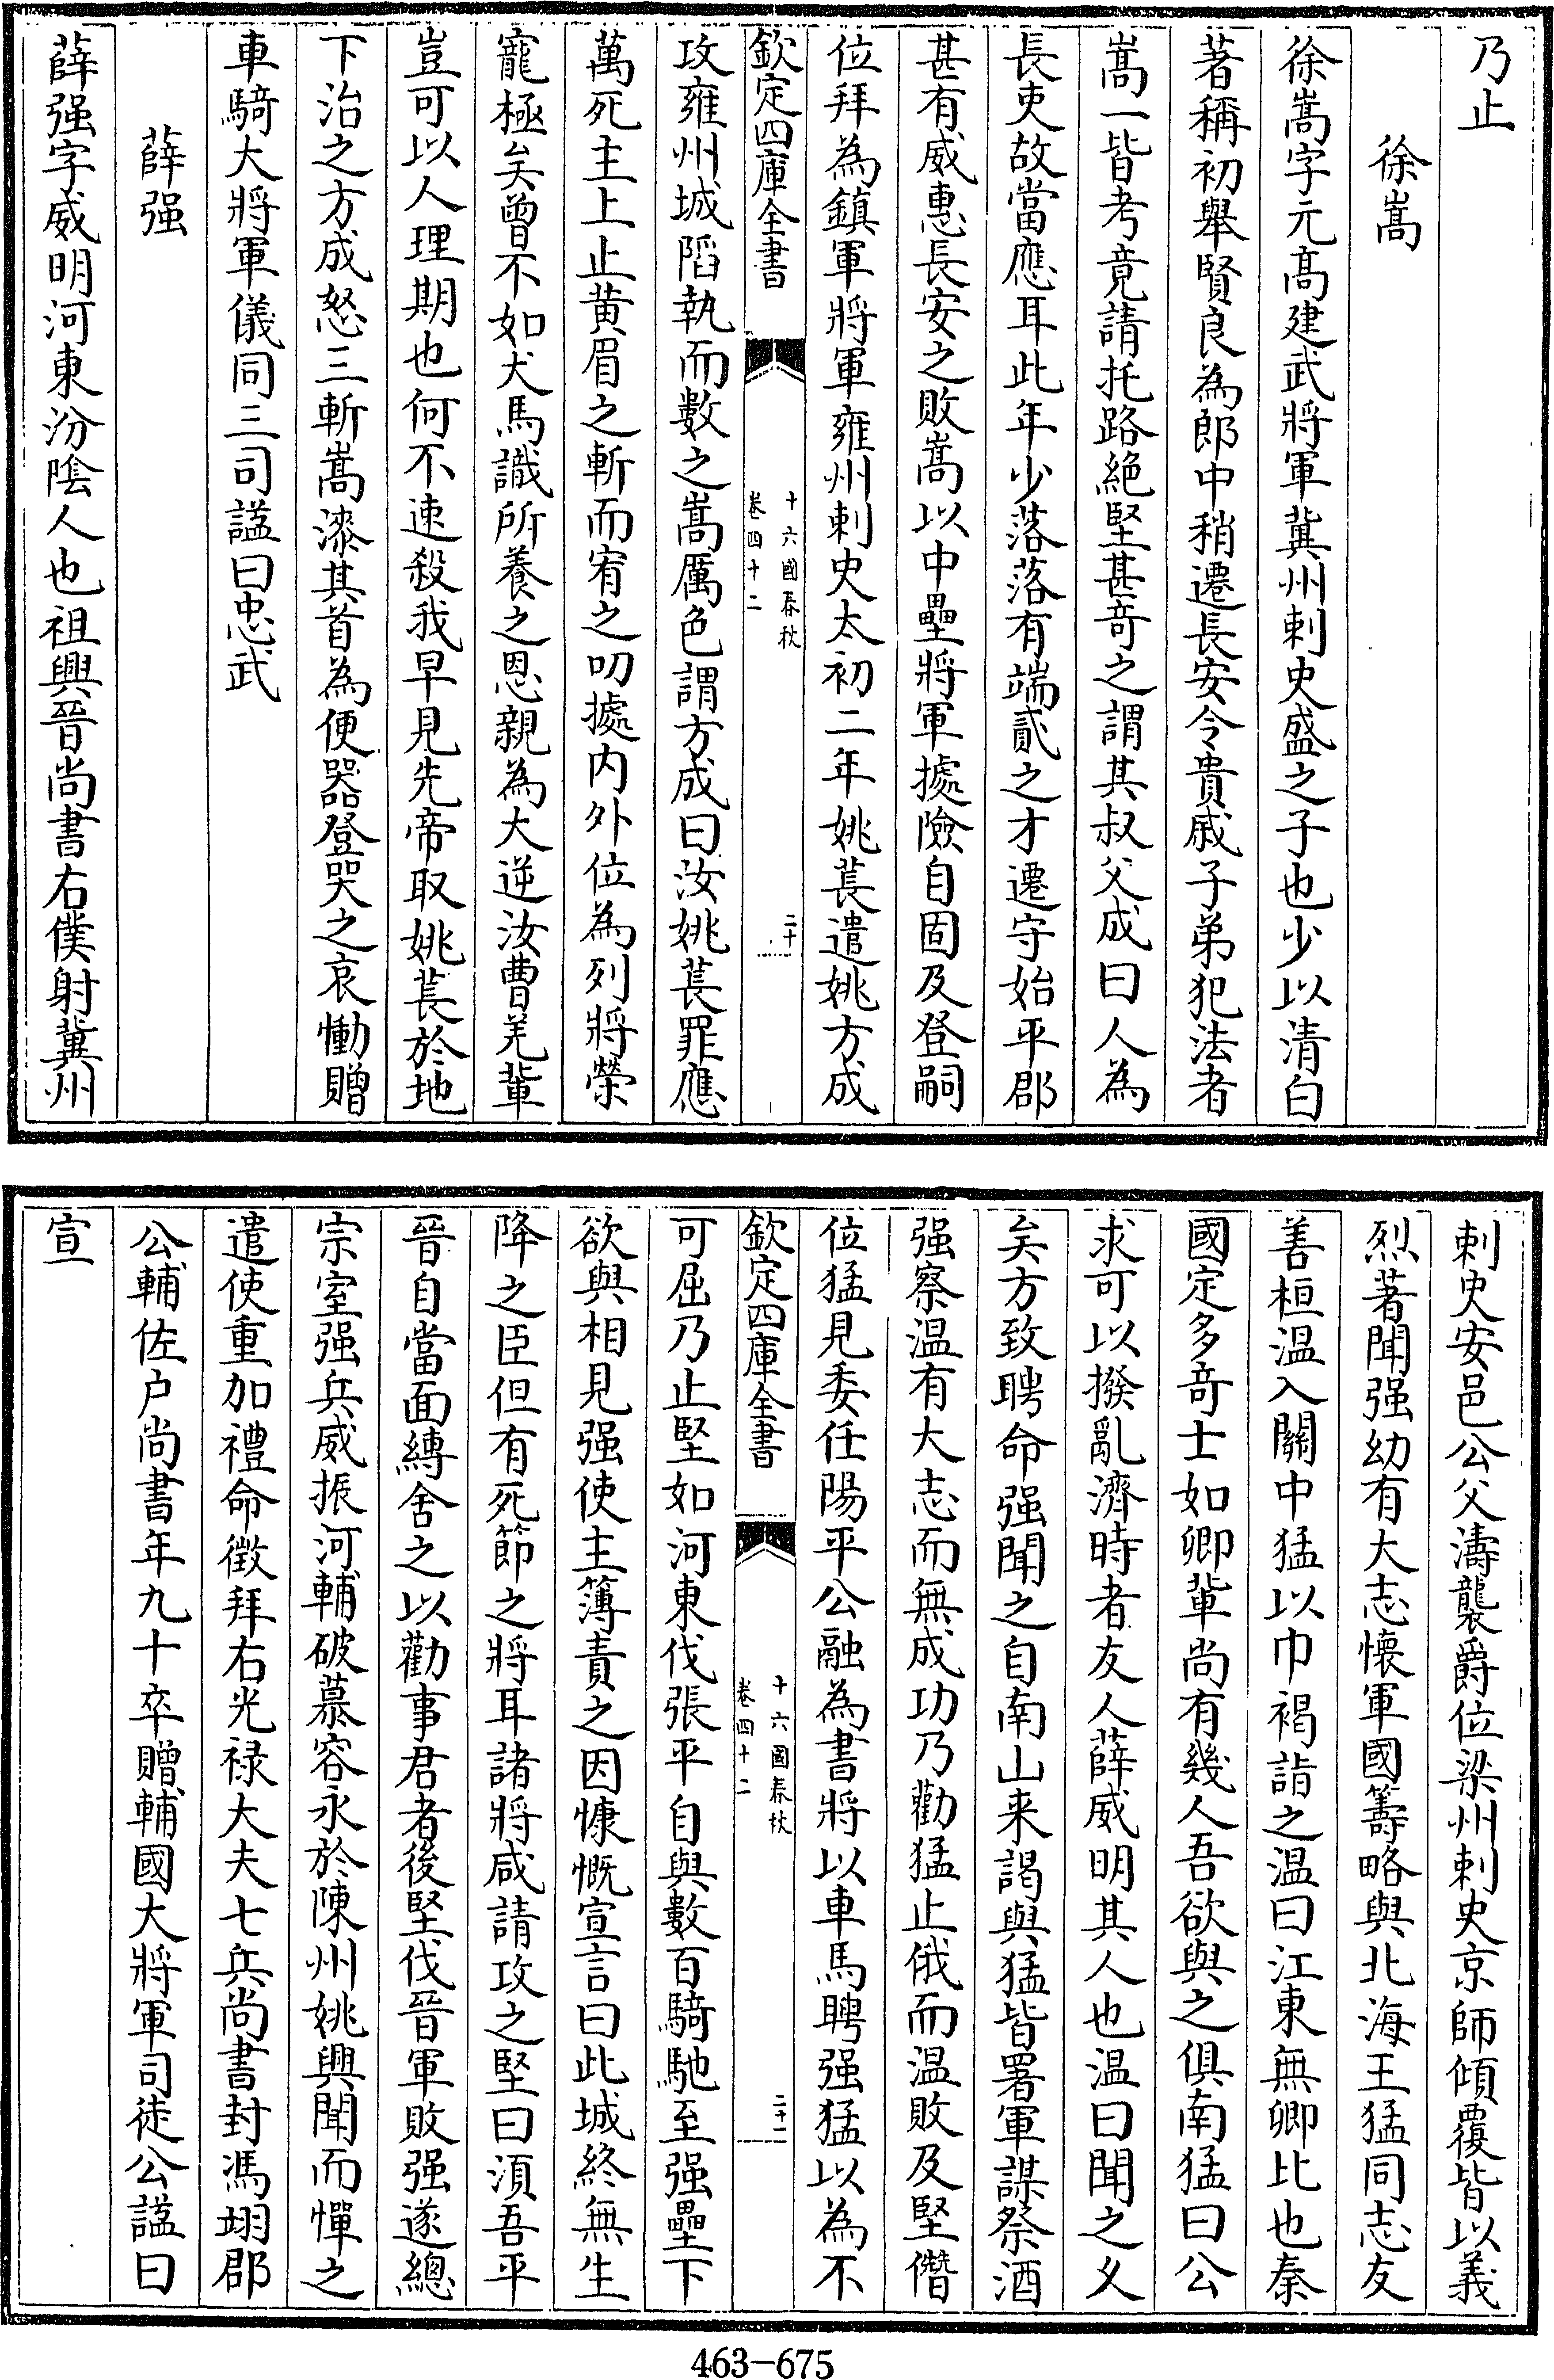 乃止
徐嵩
徐嵩字元高建武將軍冀州刺史盛之子也少以清白
著稱初舉賢良為郎中稍遷長安令貴戚子弟犯法者
嵩一皆考竟請托路絶堅甚竒之謂其叔父成曰人為
長吏故當應耳此年少落落有端貳之才遷守始平郡
甚有威惠長安之敗嵩以中壘將軍據險自固及登嗣
位拜為鎮軍將軍雍州刺史太初二年姚萇遣姚方成
欽定四庫全書
十六國春秋
卷四十二
二十
攻雍州城䧟執而數之嵩厲色謂方成曰汝姚萇罪應
萬死主上止黄眉之斬而宥之叨據内外位為列將榮
寵極矣曾不如犬馬識所養之恩親為大逆汝曹羌輩
豈可以人理期也何不速殺我早見先帝取姚萇於地
下治之方成怒三斬嵩漆其首為便器登哭之哀慟贈
車騎大將軍儀同三司諡曰忠武
薛强
薛强字威明河東汾陰人也祖興晉尚書右僕射冀州
刺史安邑公父濤襲爵位梁州刺史京師傾覆皆以義
烈著聞强幼有大志懷軍國籌略與北海王猛同志友
善桓温入關中猛以巾褐詣之温曰江東無卿比也秦
國定多竒士如卿輩尚有幾人吾欲與之俱南猛曰公
求可以撥亂濟時者友人薛威明其人也温曰聞之乆
矣方致聘命强聞之自南山来謁與猛皆署軍謀祭酒
强察温有大志而無成功乃勸猛止俄而温敗及堅僭
位猛見委任陽平公融為書將以車馬聘强猛以為不
欽定四庫全書
十六國春秋
卷四十二
二十一
可屈乃止堅如河東伐張平自與數百騎馳至强壘下
欲與相見强使主簿責之因慷慨宣言曰此城終無生
降之臣但有死節之將耳諸將咸請攻之堅曰湏吾平
晉自當面縛舍之以勸事君者後堅伐晉軍敗强遂總
宗室强兵威振河輔破慕容永於陳州姚興聞而憚之
遣使重加禮命徵拜右光禄大夫七兵尚書封馮翊郡
公輔佐户尚書年九十卒贈輔國大將軍司徒公諡曰
宣
463-675